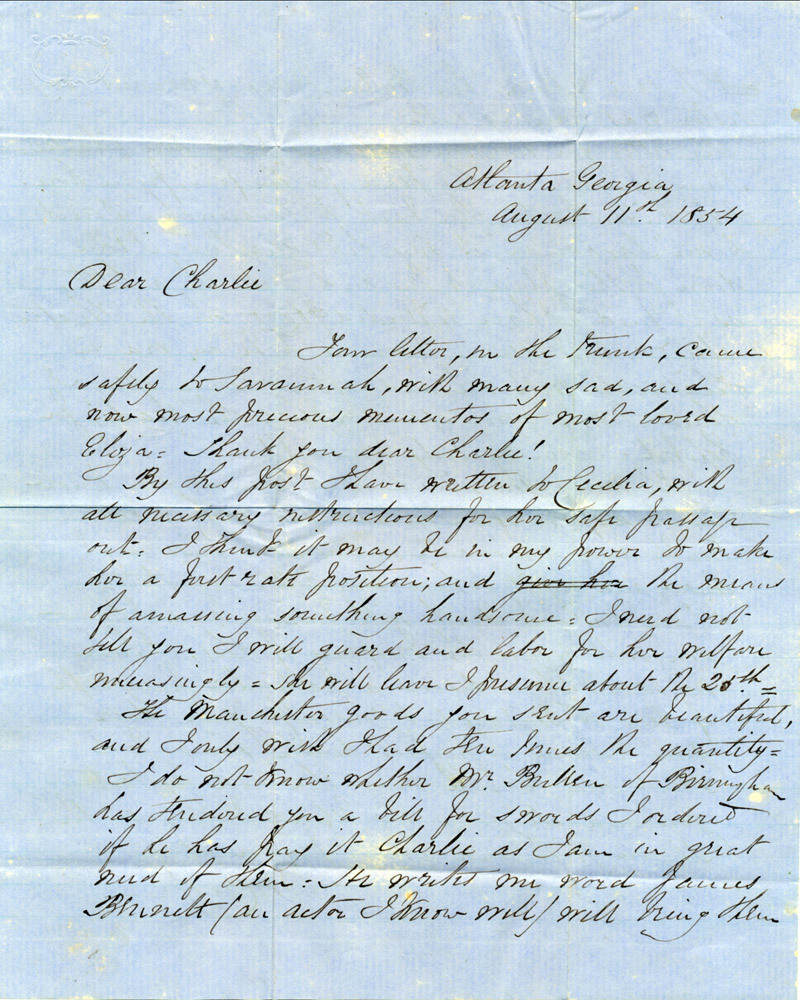 Atlanta Georgia
August 11th. 1854
Dear Charlie
Your letter, in the Trunk, came
safely to Savannah, with many sad, and
now most precious mementos of most loved
Eliza = Thank you dear Charlie!
By this post I have written to Cecilia, with
all necessary instructions for her safe passage
out. I think it may be in my power to make
her a first rate position; and give her the means
of amassing something handsome = I need not
tell you I will guard and labor for her welfare
unceasingly = She will leave I presume about the 25th =
The Manchester goods you sent are beautiful,
and I only wish I had ten times the quantity =
I do not know whether Mr. Bullen of Birmingham
has tendered you a bill for swords I ordered
if he has pay it Charlie as I am in great
need of them = He writes me word James
Bennett (an actor I know well) will bring them